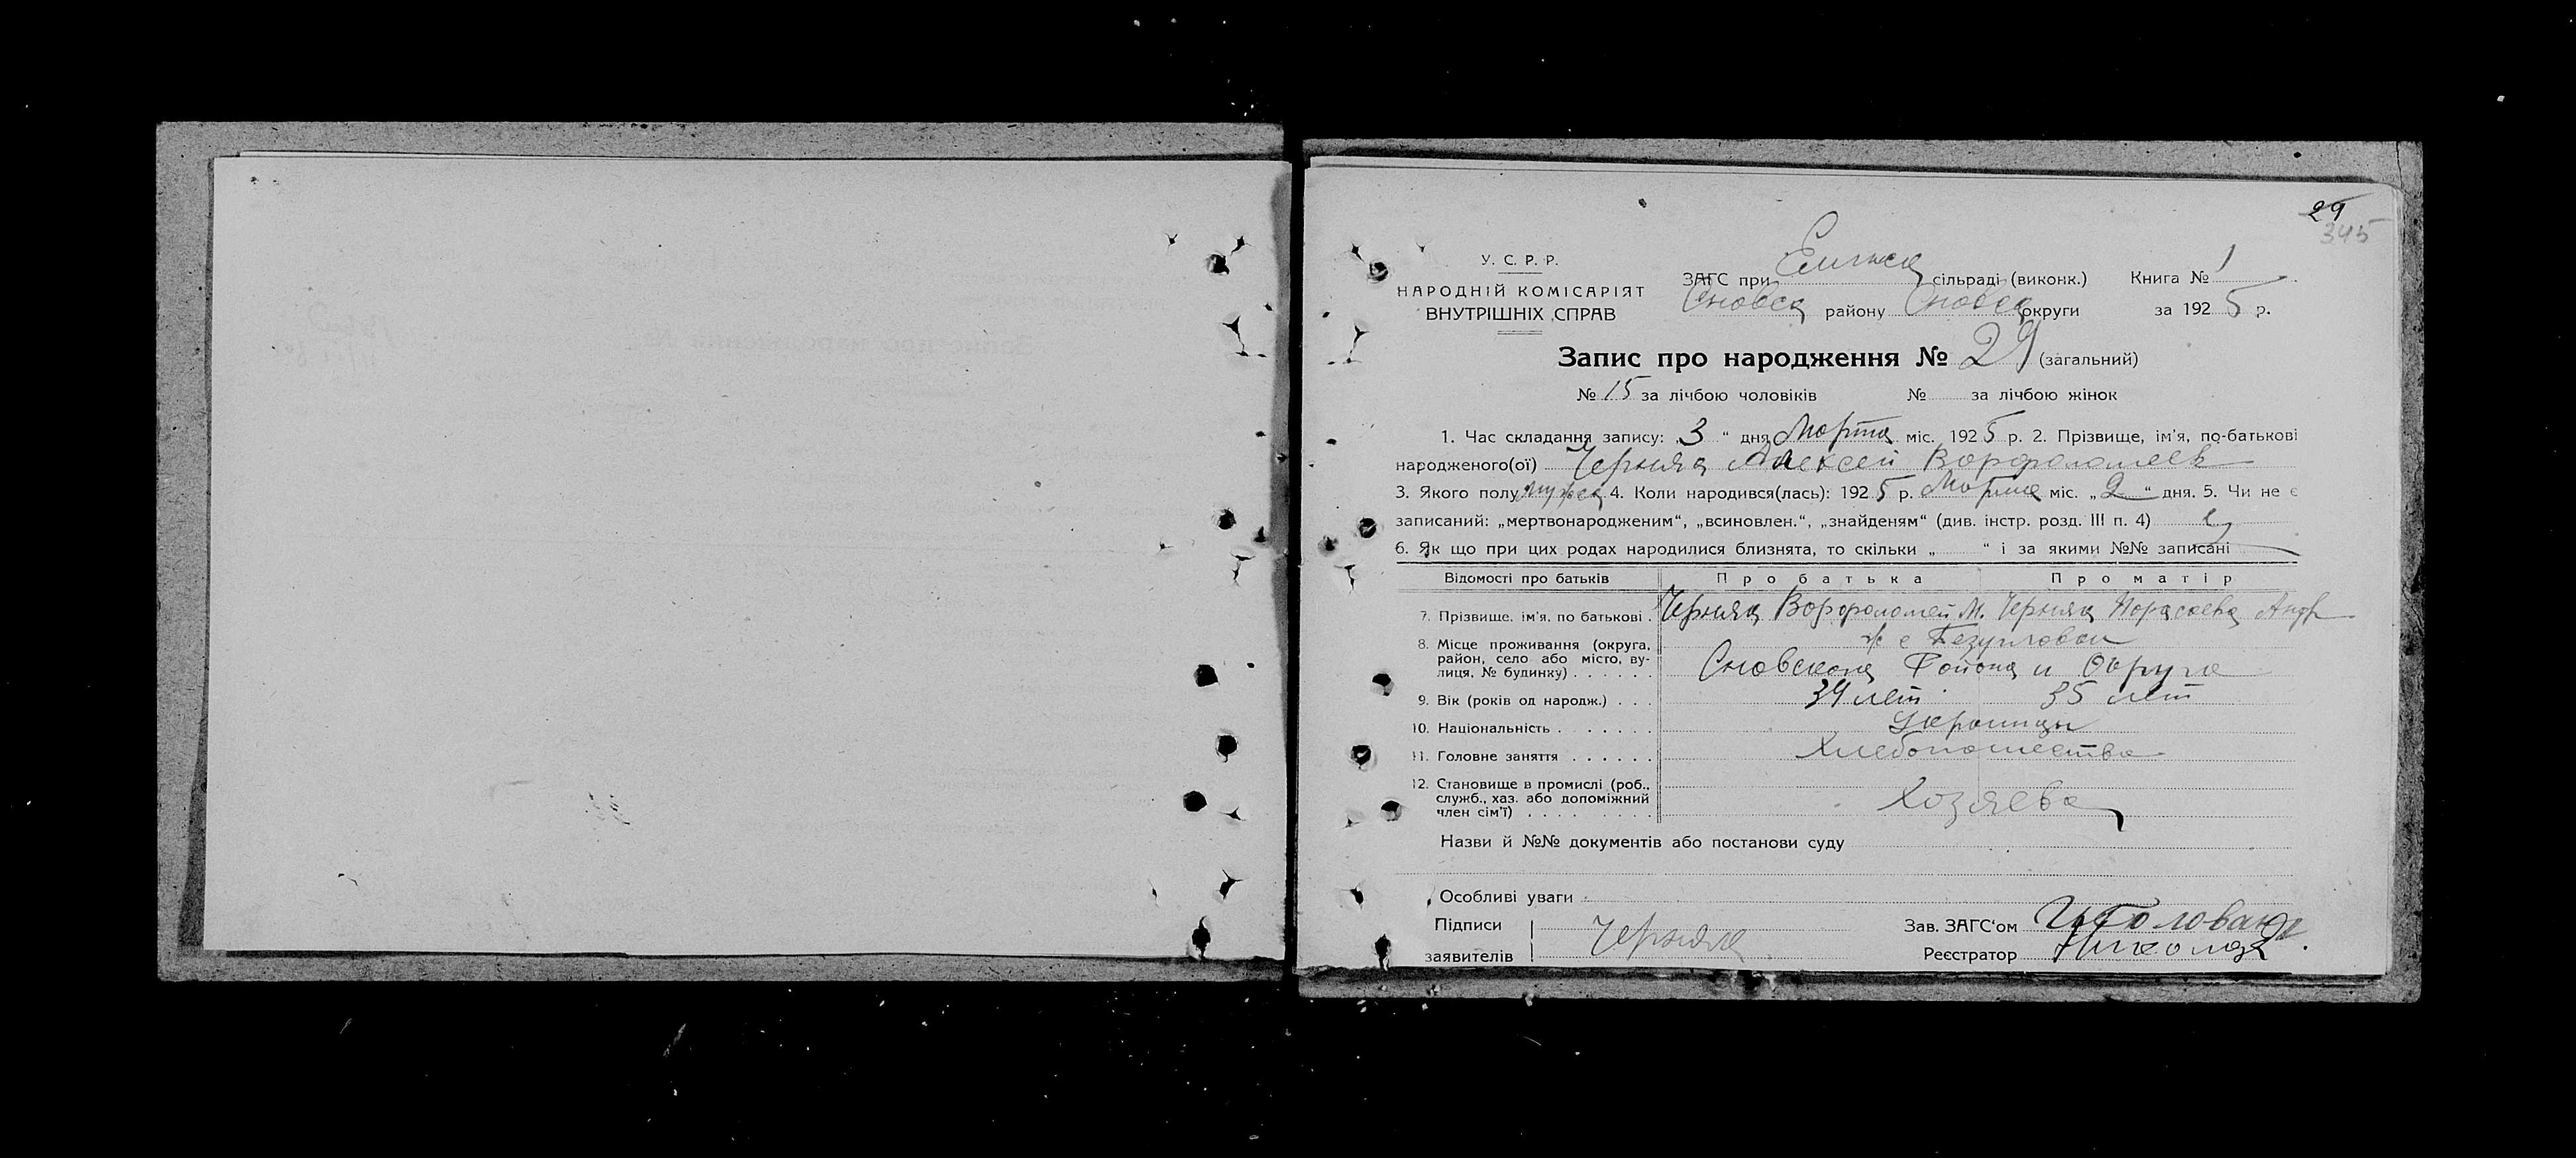 29
345
У. С. Р. Р.
НАРОДНІЙ КОМІСАРІЯТ
ВНУТРІШНІХ СПРАВ
ЗАГС при сільраді (виконк.) Книга № 1
Сновск району Сновск округи за 1925 р.
Запис про народження № 29 (загальний)
№ 15 за лічбою чоловіків № за лічбою жінок
1. Час складання запису: „3“ дня Марта міс. 1925 р. 2. Прізвище, ім'я, по-батькові
народженого(ої) Черняк Алексей Ворфоломеев
3. Якого полу мужск 4. Коли народився(лась): 1925 р. Марта міс. „2“ дня. 5. Чи не є
записаний: „мертвонародженим“, „всиновлен.“, „знайденям“ (див. інстр. розд. III п. 4)
6. Як що при цих родах народилися близнята, то скільки „ “ і за якими №№ записані
Відомості про батьків Про батька Про матір
7. Прізвище, ім'я, по батькові . Черняк Ворфоломей М. Черняк Порасковя Андр
8. Місце проживання (округа, район, село або місто, вулиця, № будинку) . . . . . .
Сновского Район и Округа
9. Вік (років од народж.) . . . 39 лет 35 лет
10. Національність . . . . . . . Украинцы
11. Головне заняття . . . . . . Хлебопашество
12. Становище в промислі (роб., служб., хаз. або допоміжний член сім'ї) . . . . . . . . . Хозяева
Назви й №№ документів або постанови суду
Особливі уваги
Підписи Зав. ЗАГС'ом
заявителів Черняк Реєстратор